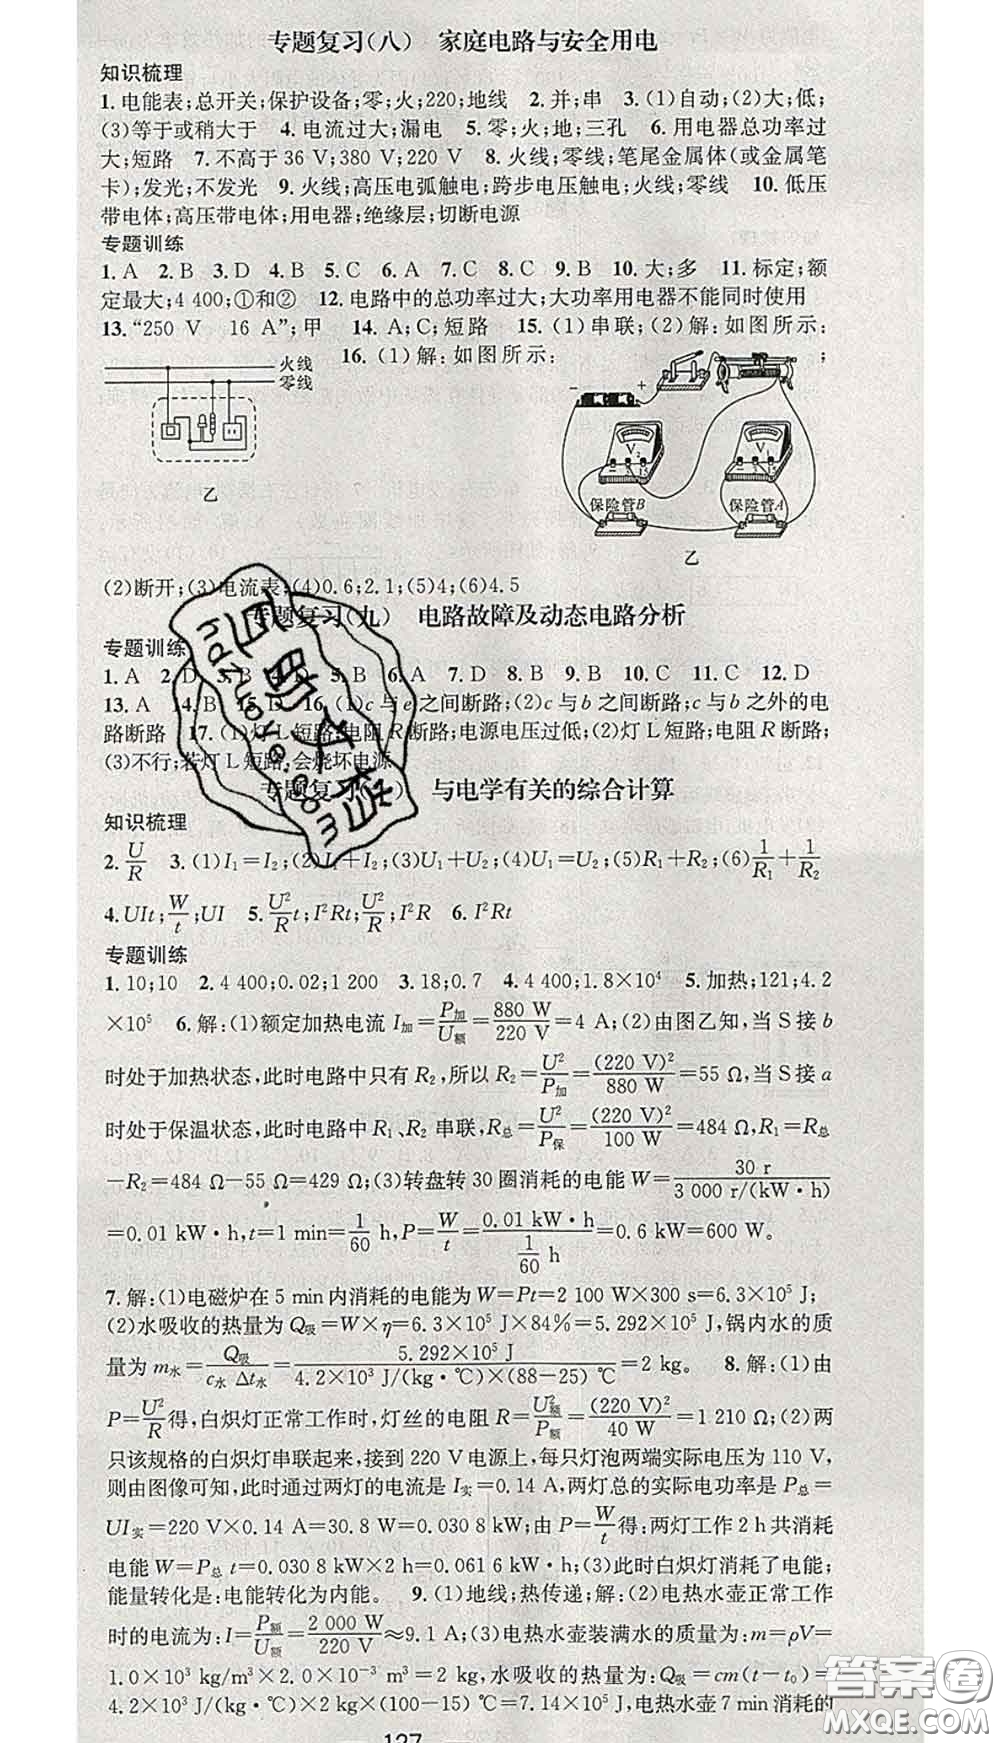 专题复习(八) 家庭电路与安全用电
知识梳理
1.电能表;总开关;保护设备;零;火;220;地线 2.并;串 3.(1)自动;(2)大;低;
(3)等于或稍大于 4.电流过大;漏电 5.零;火;地;三孔 6.用电器总功率过
大;短路 7.不高于36 V;380 V;220 V 8.火线;零线;笔尾金属体(或金属笔
卡);发光;不发光 9.火线;高压电弧触电;跨步电压触电;火线;零线 10.低压
带电体;高压带电体;用电器;绝缘层;切断电源
专题训练
1.A 2.B 3.D 4.B 5.C 6.A 7.C 8.C 9.B 10.大;多 11.标定;额
定最大;4 400;①和② 12.电路中的总功率过大;大功率用电器不能同时使用
13.“250 V 16 A”;甲 14.A;C;短路 15.(1)串联;(2)解:如图所示:
16.(1)解:如图所示: ;
火线
零线
乙
− +
V₂ V₁
保险管B 保险管A
乙
(2)断开;(3)电流表;(4)0.6;2.1;(5)4;(6)4.5
专题复习(九) 电路故障及动态电路分析
专题训练
1.A 2.D 3.B 4.D 5.B 6.A 7.D 8.D 9.B 10.C 11.C 12.D
13.A 14.B 15.D 16.(1)c与e之间断路;(2)c与b之间断路;c与b之外的电
路断路 17.(1)灯L短路;电阻R断路;电源电压过低;(2)灯L短路;电阻R断路;
(3)不行;若灯L短路,会烧坏电源
专题复习( ) 与电学有关的综合计算
知识梳理
2.U/R 3.(1)I₁=I₂;(2)I₁+I₂;(3)U₁+U₂;(4)U₁=U₂;(5)R₁+R₂;(6)1/R₁+1/R₂
4.UIt;W/t;UI 5.U²/R t;I²Rt;U²/R;I²R 6.I²Rt
专题训练
1.10;10 2.4 400;0.02;1 200 3.18;0.7 4.4 400;1.8×10⁴ 5.加热;121;4.2
×10⁵ 6.解:(1)额定加热电流I加=P加/U额=880 W/220 V=4 A;(2)由图乙知,当S接b
时处于加热状态,此时电路中只有R₂,所以R₂=U²/P加=(220 V)²/880 W=55 Ω,当S接a
时处于保温状态,此时电路中R₁、R₂串联,R总=U²/P保=(220 V)²/100 W=484 Ω,R₁=R总
−R₂=484 Ω−55 Ω=429 Ω;(3)转盘转30圈消耗的电能W=30 r/3 000 r/(kW·h)
=0.01 kW·h,t=1 min=1/60 h,P=W/t=0.01 kW·h/(1/60 h)=0.6 kW=600 W。
7.解:(1)电磁炉在5 min内消耗的电能为W=Pt=2 100 W×300 s=6.3×10⁵ J;
(2)水吸收的热量为Q吸=W×η=6.3×10⁵ J×84%=5.292×10⁵ J,锅内水的质
量为m水=Q吸/c水Δt水=5.292×10⁵ J/4.2×10³ J/(kg·℃)×(88−25) ℃=2 kg。 8.解:(1)由
P=U²/R得,白炽灯正常工作时,灯丝的电阻R=U额²/P额=(220 V)²/40 W=1 210 Ω;(2)两
只该规格的白炽灯串联起来,接到220 V电源上,每只灯泡两端实际电压为110 V,
则由图像可知,此时通过两灯的电流是I实=0.14 A,两灯总的实际电功率是P总=
UI实=220 V×0.14 A=30.8 W=0.030 8 kW;由P=W/t得:两灯工作2 h共消耗
电能W=P总t=0.030 8 kW×2 h=0.061 6 kW·h;(3)此时白炽灯消耗了电能;
能量转化是:电能转化为内能。 9.(1)地线;热传递;解:(2)电热水壶正常工作
时的电流为:I=P额/U额=2 000 W/220 V≈9.1 A;(3)电热水壶装满水的质量为:m=ρV=
1.0×10³ kg/m³×2.0×10⁻³ m³=2 kg,水吸收的热量为:Q吸=cm(t−t₀)=
4.2×10³ J/(kg·℃)×2 kg×(100−15)℃=7.14×10⁵ J,电热水壶7 min消耗的
127
答案圈
MXQE.COM